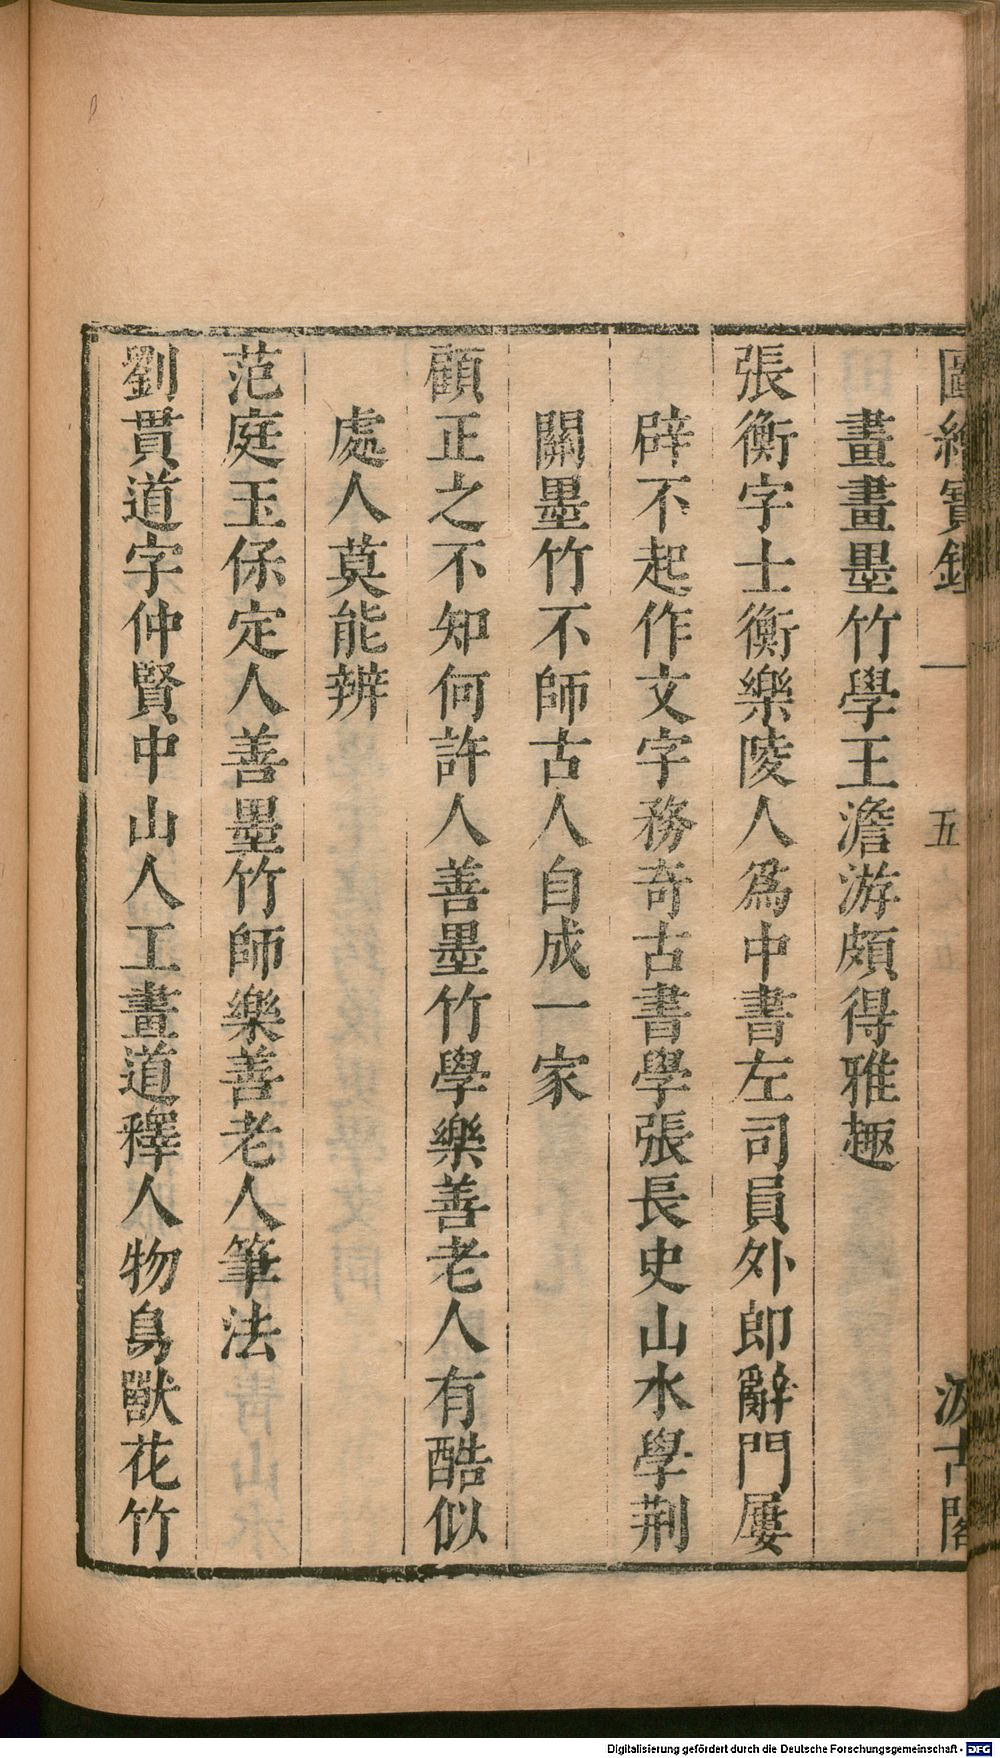 圖繪寶鑑
五
汲古閣
畫畫墨竹學王澹游頗得雅趣
張衡字士衡樂陵人爲中書左司員外郎辭門屢
辟不起作文字務奇古書學張長史山水學荆
關墨竹不師古人自成一家
顧正之不知何許人善墨竹學樂善老人有酷似
處人莫能辨
范庭玉保定人善墨竹師樂善老人筆法
劉貫道字仲賢中山人工畫道釋人物鳥獸花竹
Digitalisierung gefördert durch die Deutsche Forschungsgemeinschaft - DFG